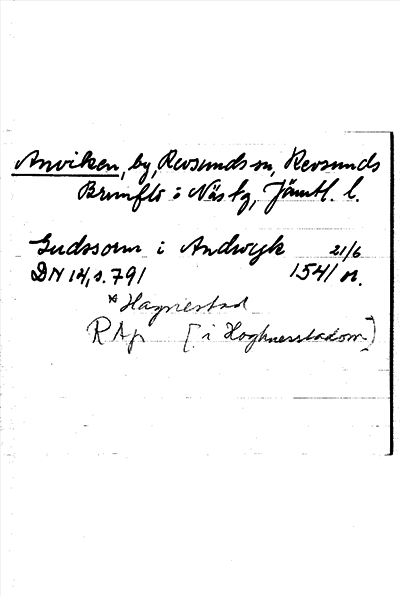 Anviken, by, Revsunds sn, Revsunds
Brunflo o Näs tg, Jämtl. l.
Gudssorm i Andwyk 21/6
DN 14, s. 791 1541 or.
*Hagnestad
R Ap [i Hoghnesstadom]